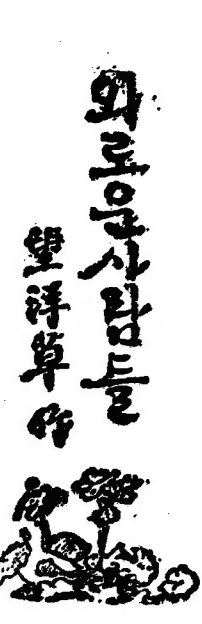 외로운사람들
望洋草作